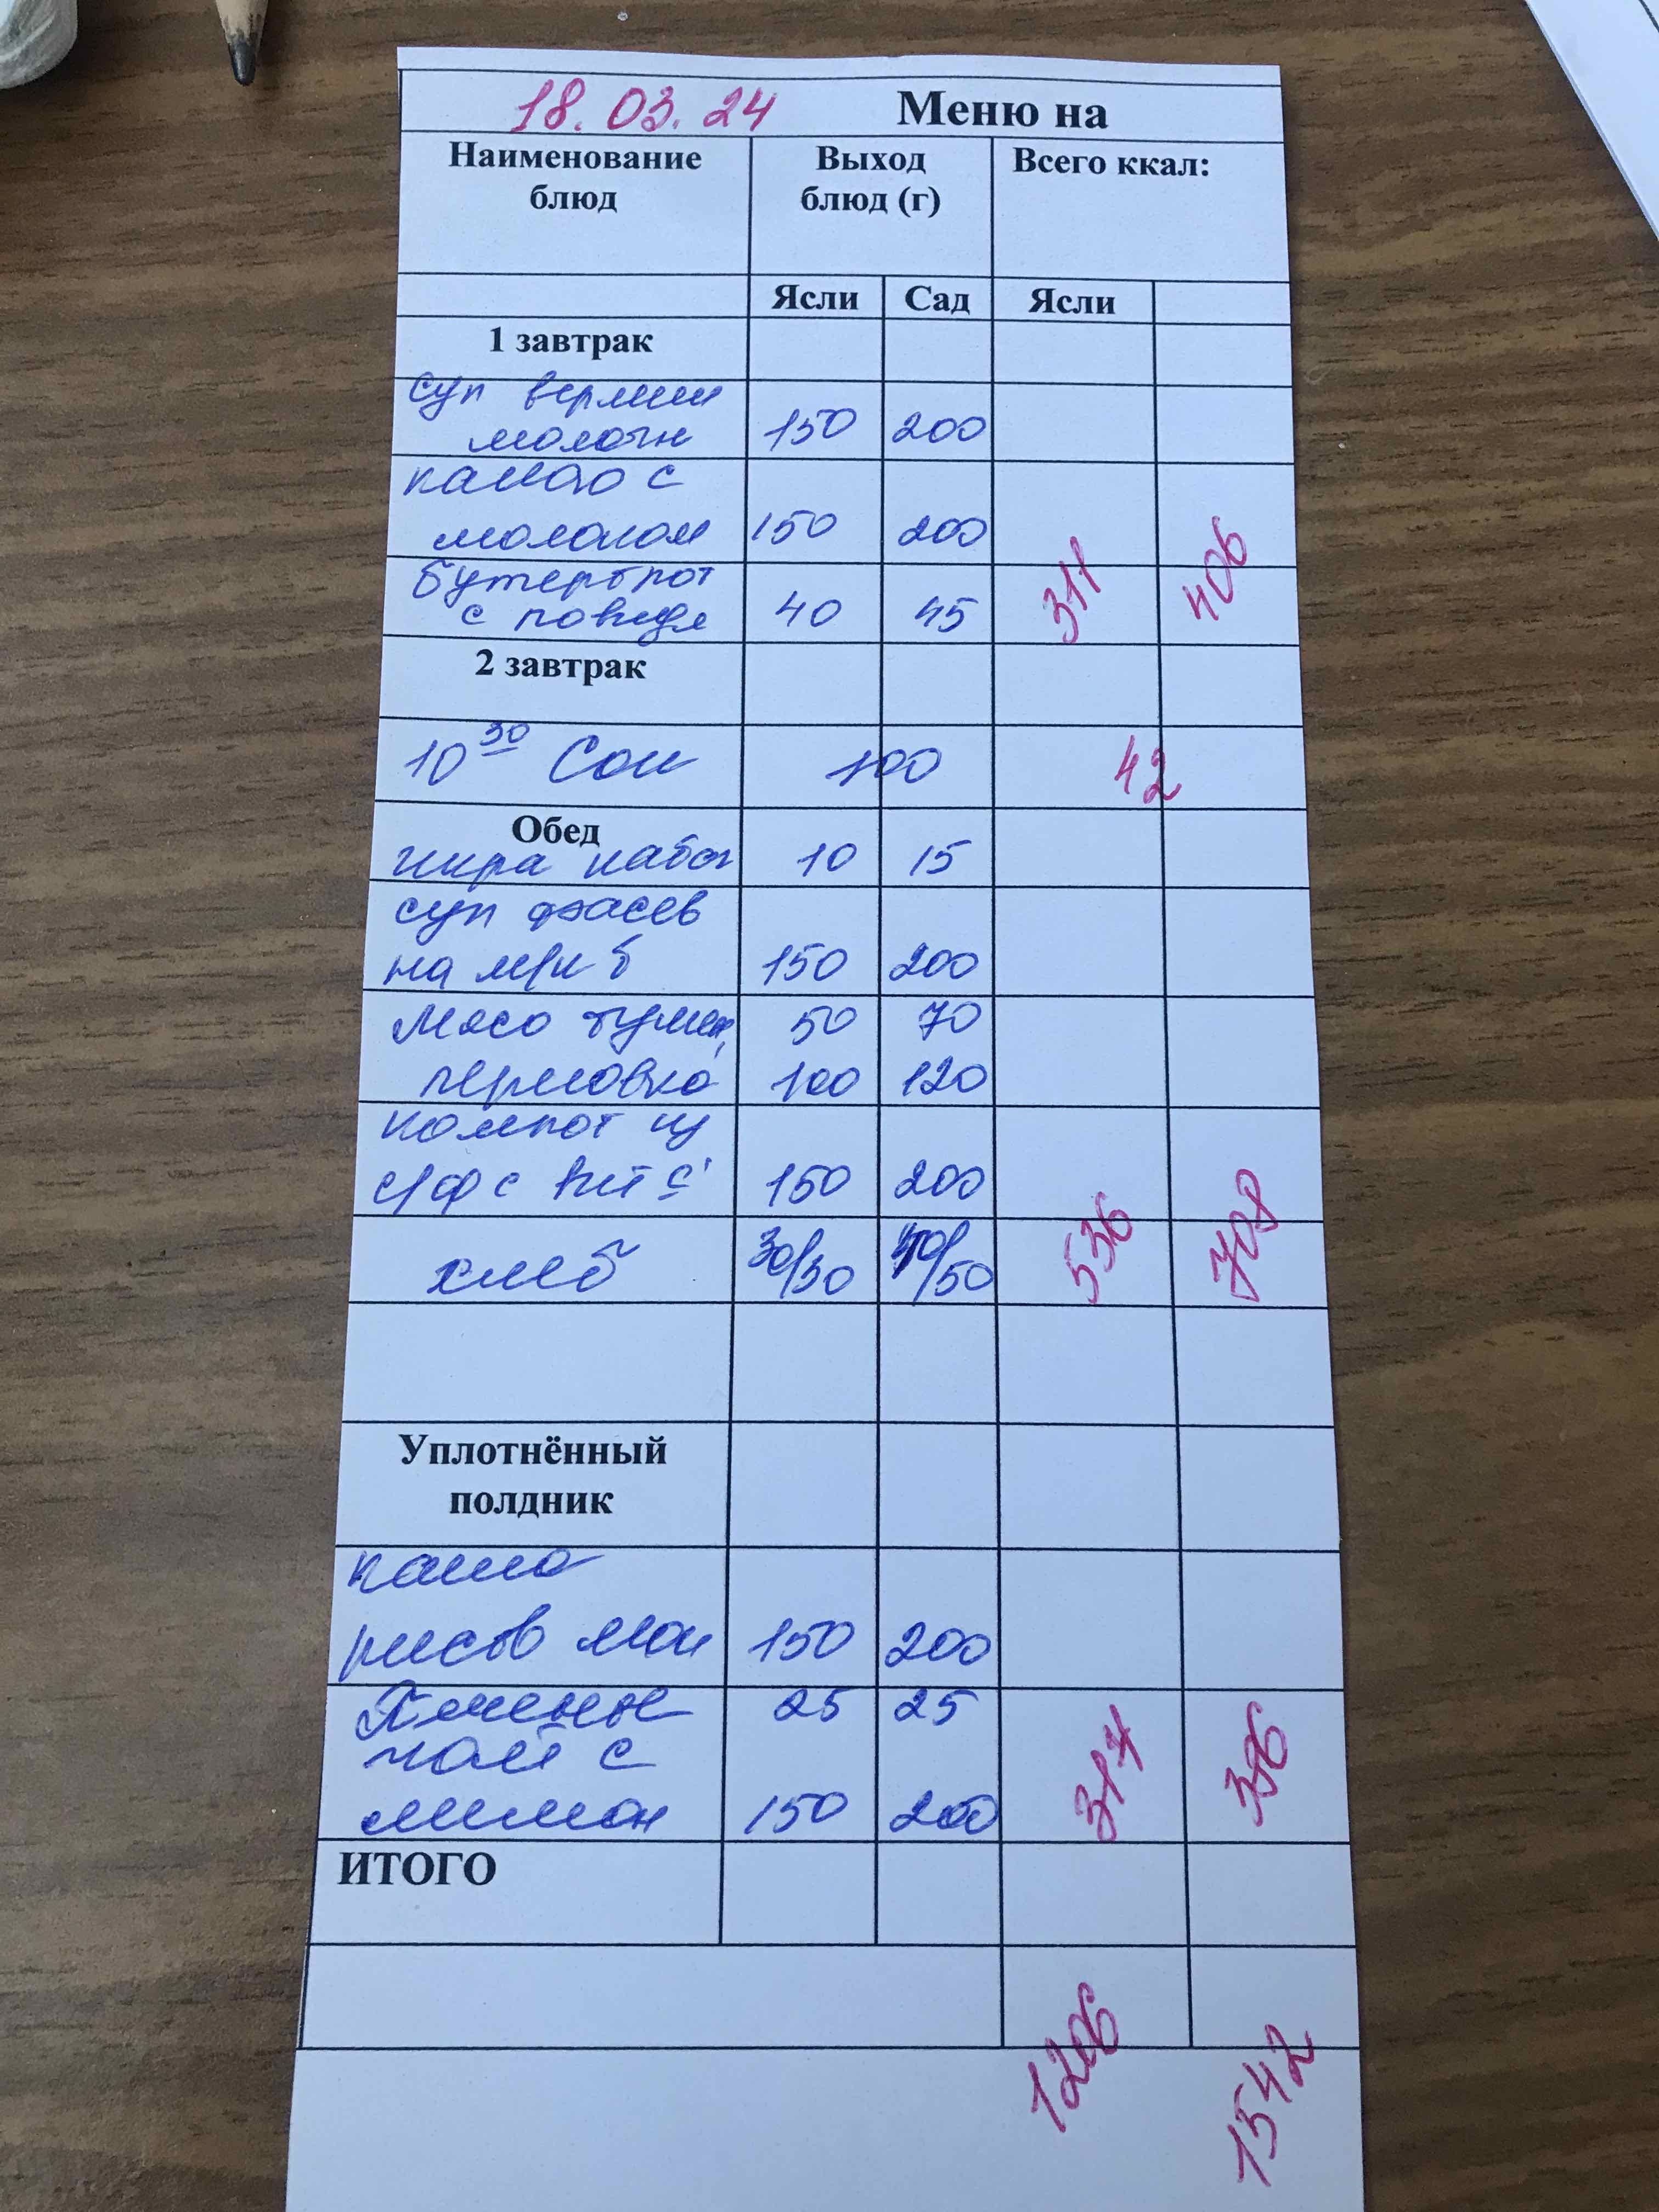 18.03.24 Меню на
Наименование блюд Выход блюд (г) Всего ккал:
Ясли Сад Ясли
1 завтрак
суп вермиш
молочн 150 200
какао с
молоком 150 200
бутерброт
с повидл 40 45 311 406
2 завтрак
10 30 Сок 100 42
Обед
икра кабач 10 15
суп фасолев
на м/к б 150 200
Мясо тушен, 50 70
перловка 100 120
компот из
с/ф с вит С 150 200
хлеб 30/30 40/50 536 708
Уплотнённый
полдник
каша
рисов мол 150 200
25 25
чай с
лимон 150 200 317 386
ИТОГО
1206 1542